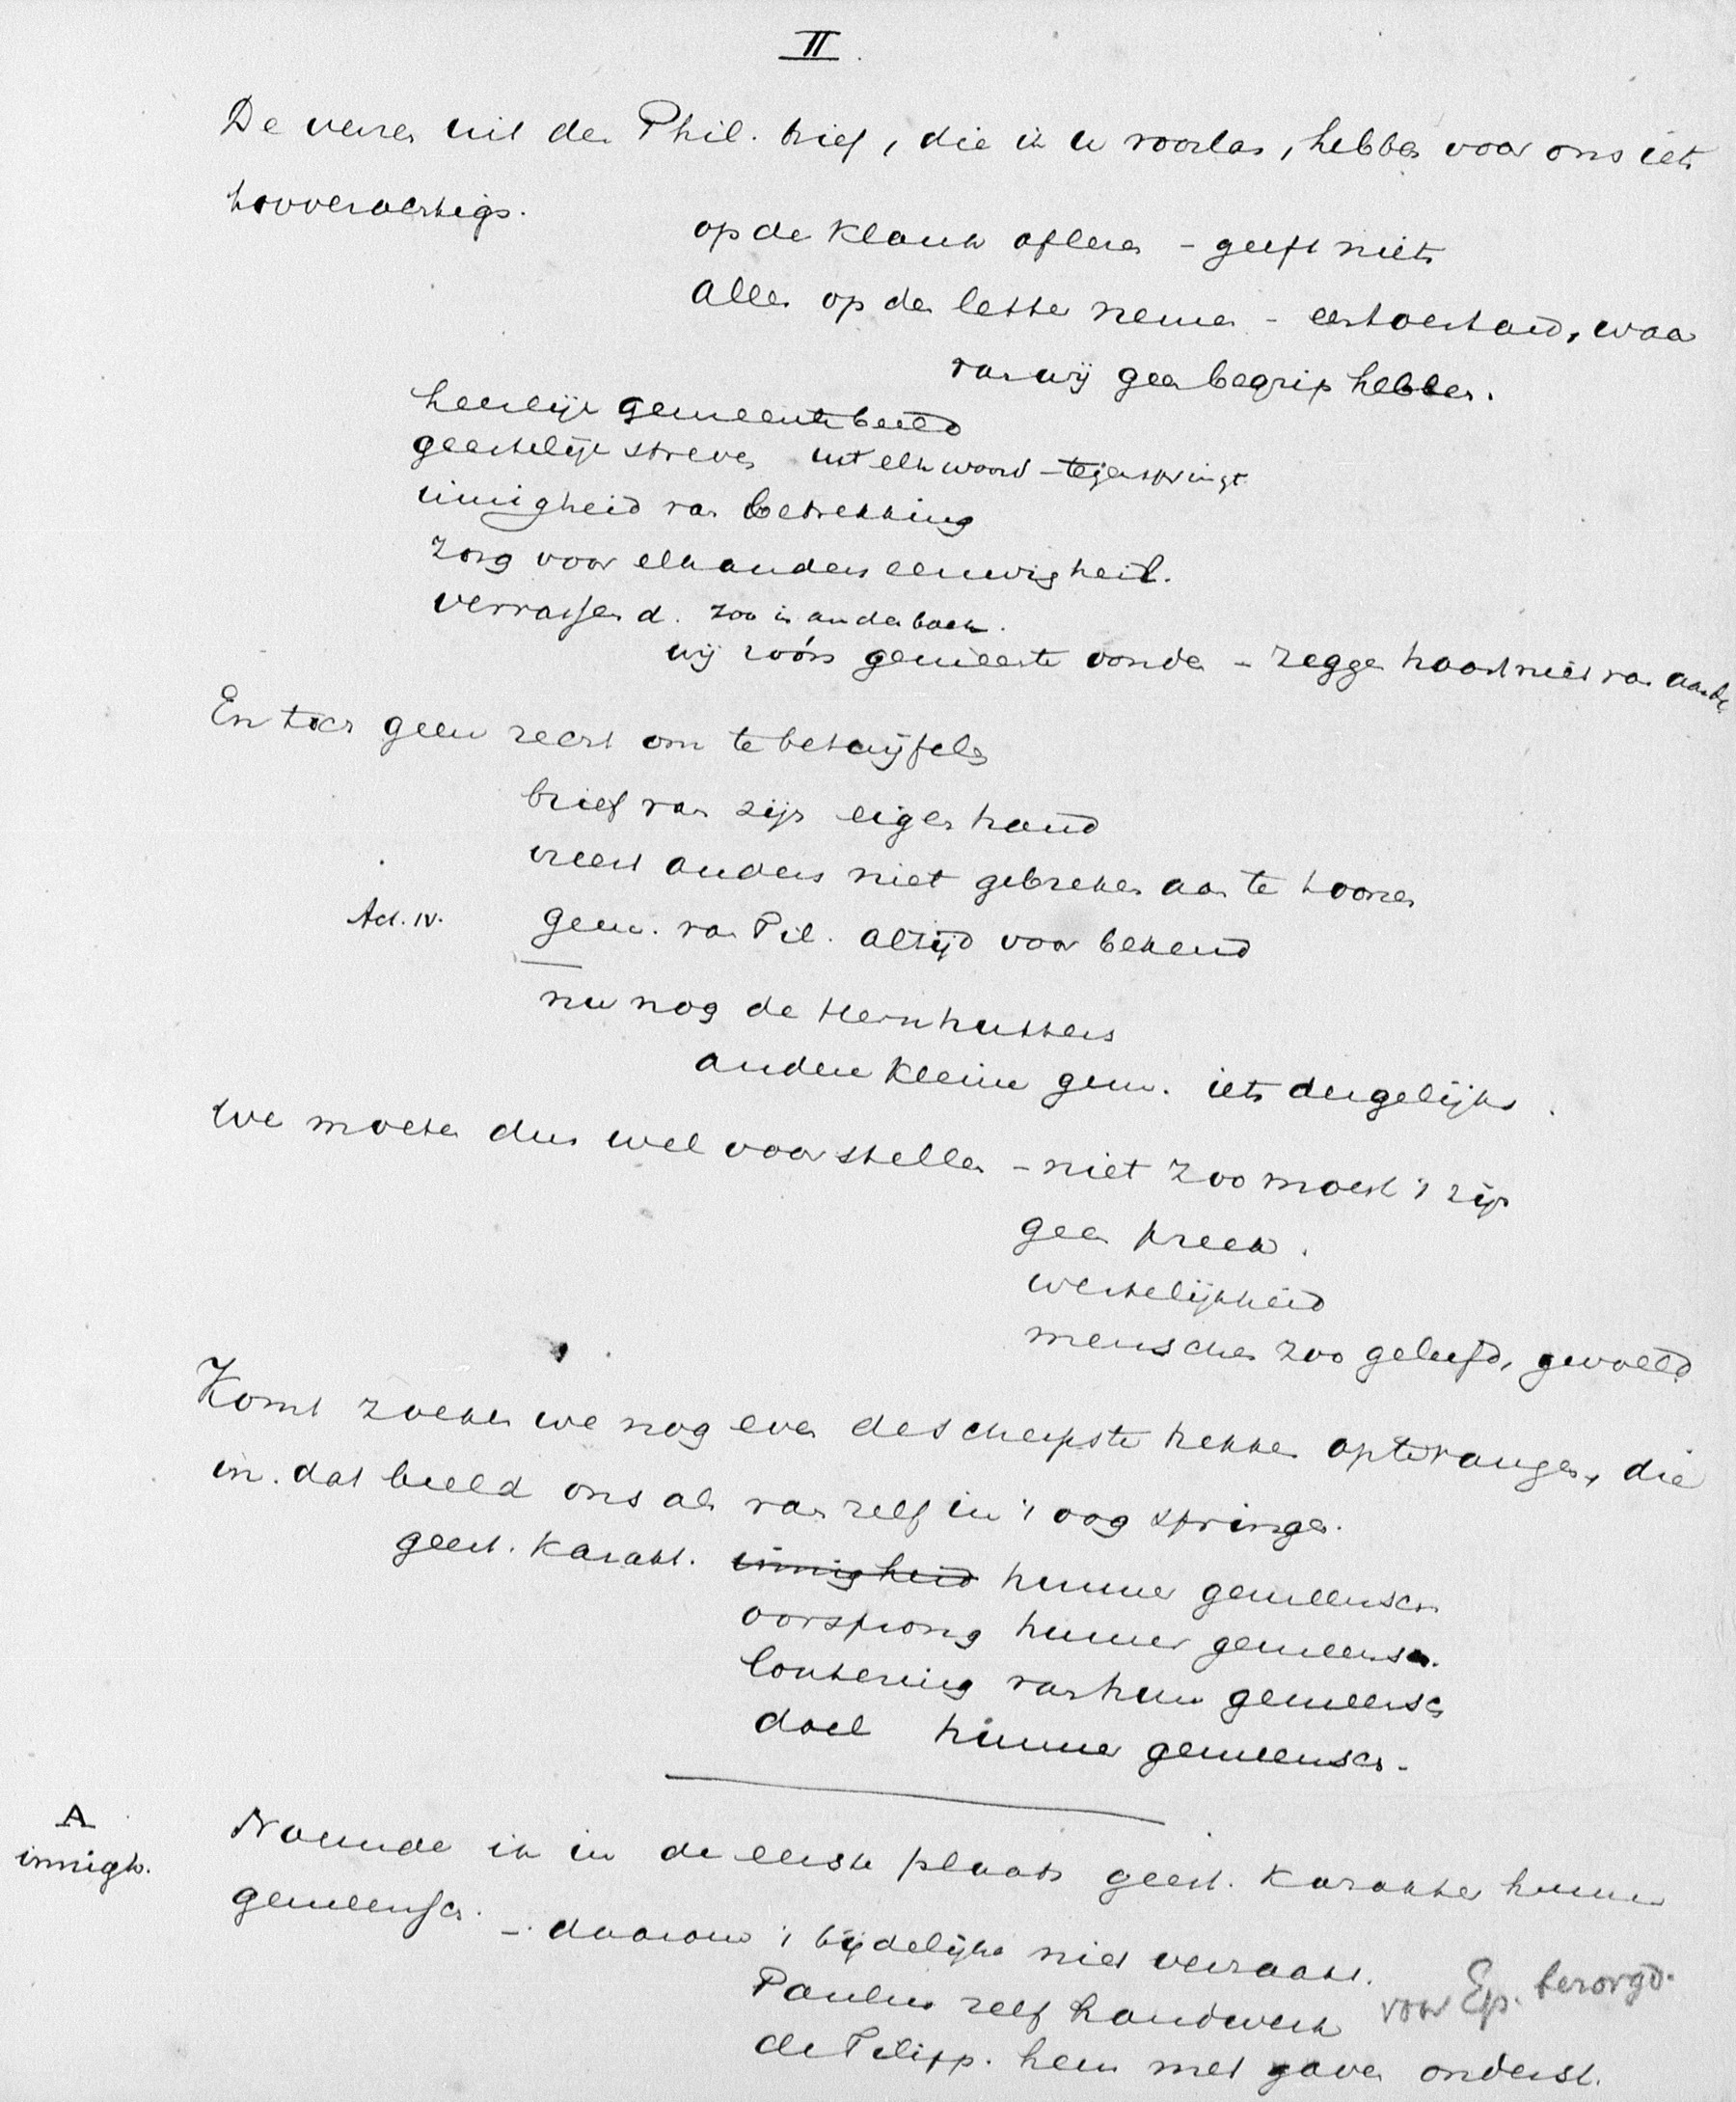 II.
De verzen uit den Phil. brief, die ik u voorlas, hebben voor ons iets
tooverachtigs.
op de klank aflezen - geeft niets
alles op de letter nemen - eerst verstaand, waar
van wij geen begrip hebben.
heerlijk gemeentebeeld
geestelijk streven uit elk woord - tegenspringt
innigheid van betrekking
zorg voor elkanders eeuwig heil.
verrassend. zoo in ander boek.
wij zóó'n gemeente vonden - zeggen haast niet van aarde
En toch geen recht om te betwijfelen
brief van zijn eigen hand
vreest anders niet gebreken aan te toonen
Act. IV. gem. van Pil. altijd voor bekend
nu nog de Hernhutters
andere kleine gem. iets dergelijks.
We moeten dus wel voorstellen - niet zoo moest 't zijn
geen preek.
werkelijkheid
menschen zoo geleefd, gevoeld
Komt zoeken we nog even de scherpste trekken op te vangen, die
in dat beeld ons als van zelf in 't oog springen.
geest. karakt. innigheid hunner gemeensch
oorsprong hunner gemeensch.
loutering van hun gemeensch
doel hunner gemeensch.
A
innigh.
Noemde ik in de eerste plaats geest. karakter hunner
gemeensch. - daarom 't tijdelijke niet verzaakt.
Paulus zelf handwerk voor Ep. bezorgd.
de Filipp. hem met gaven onderst.